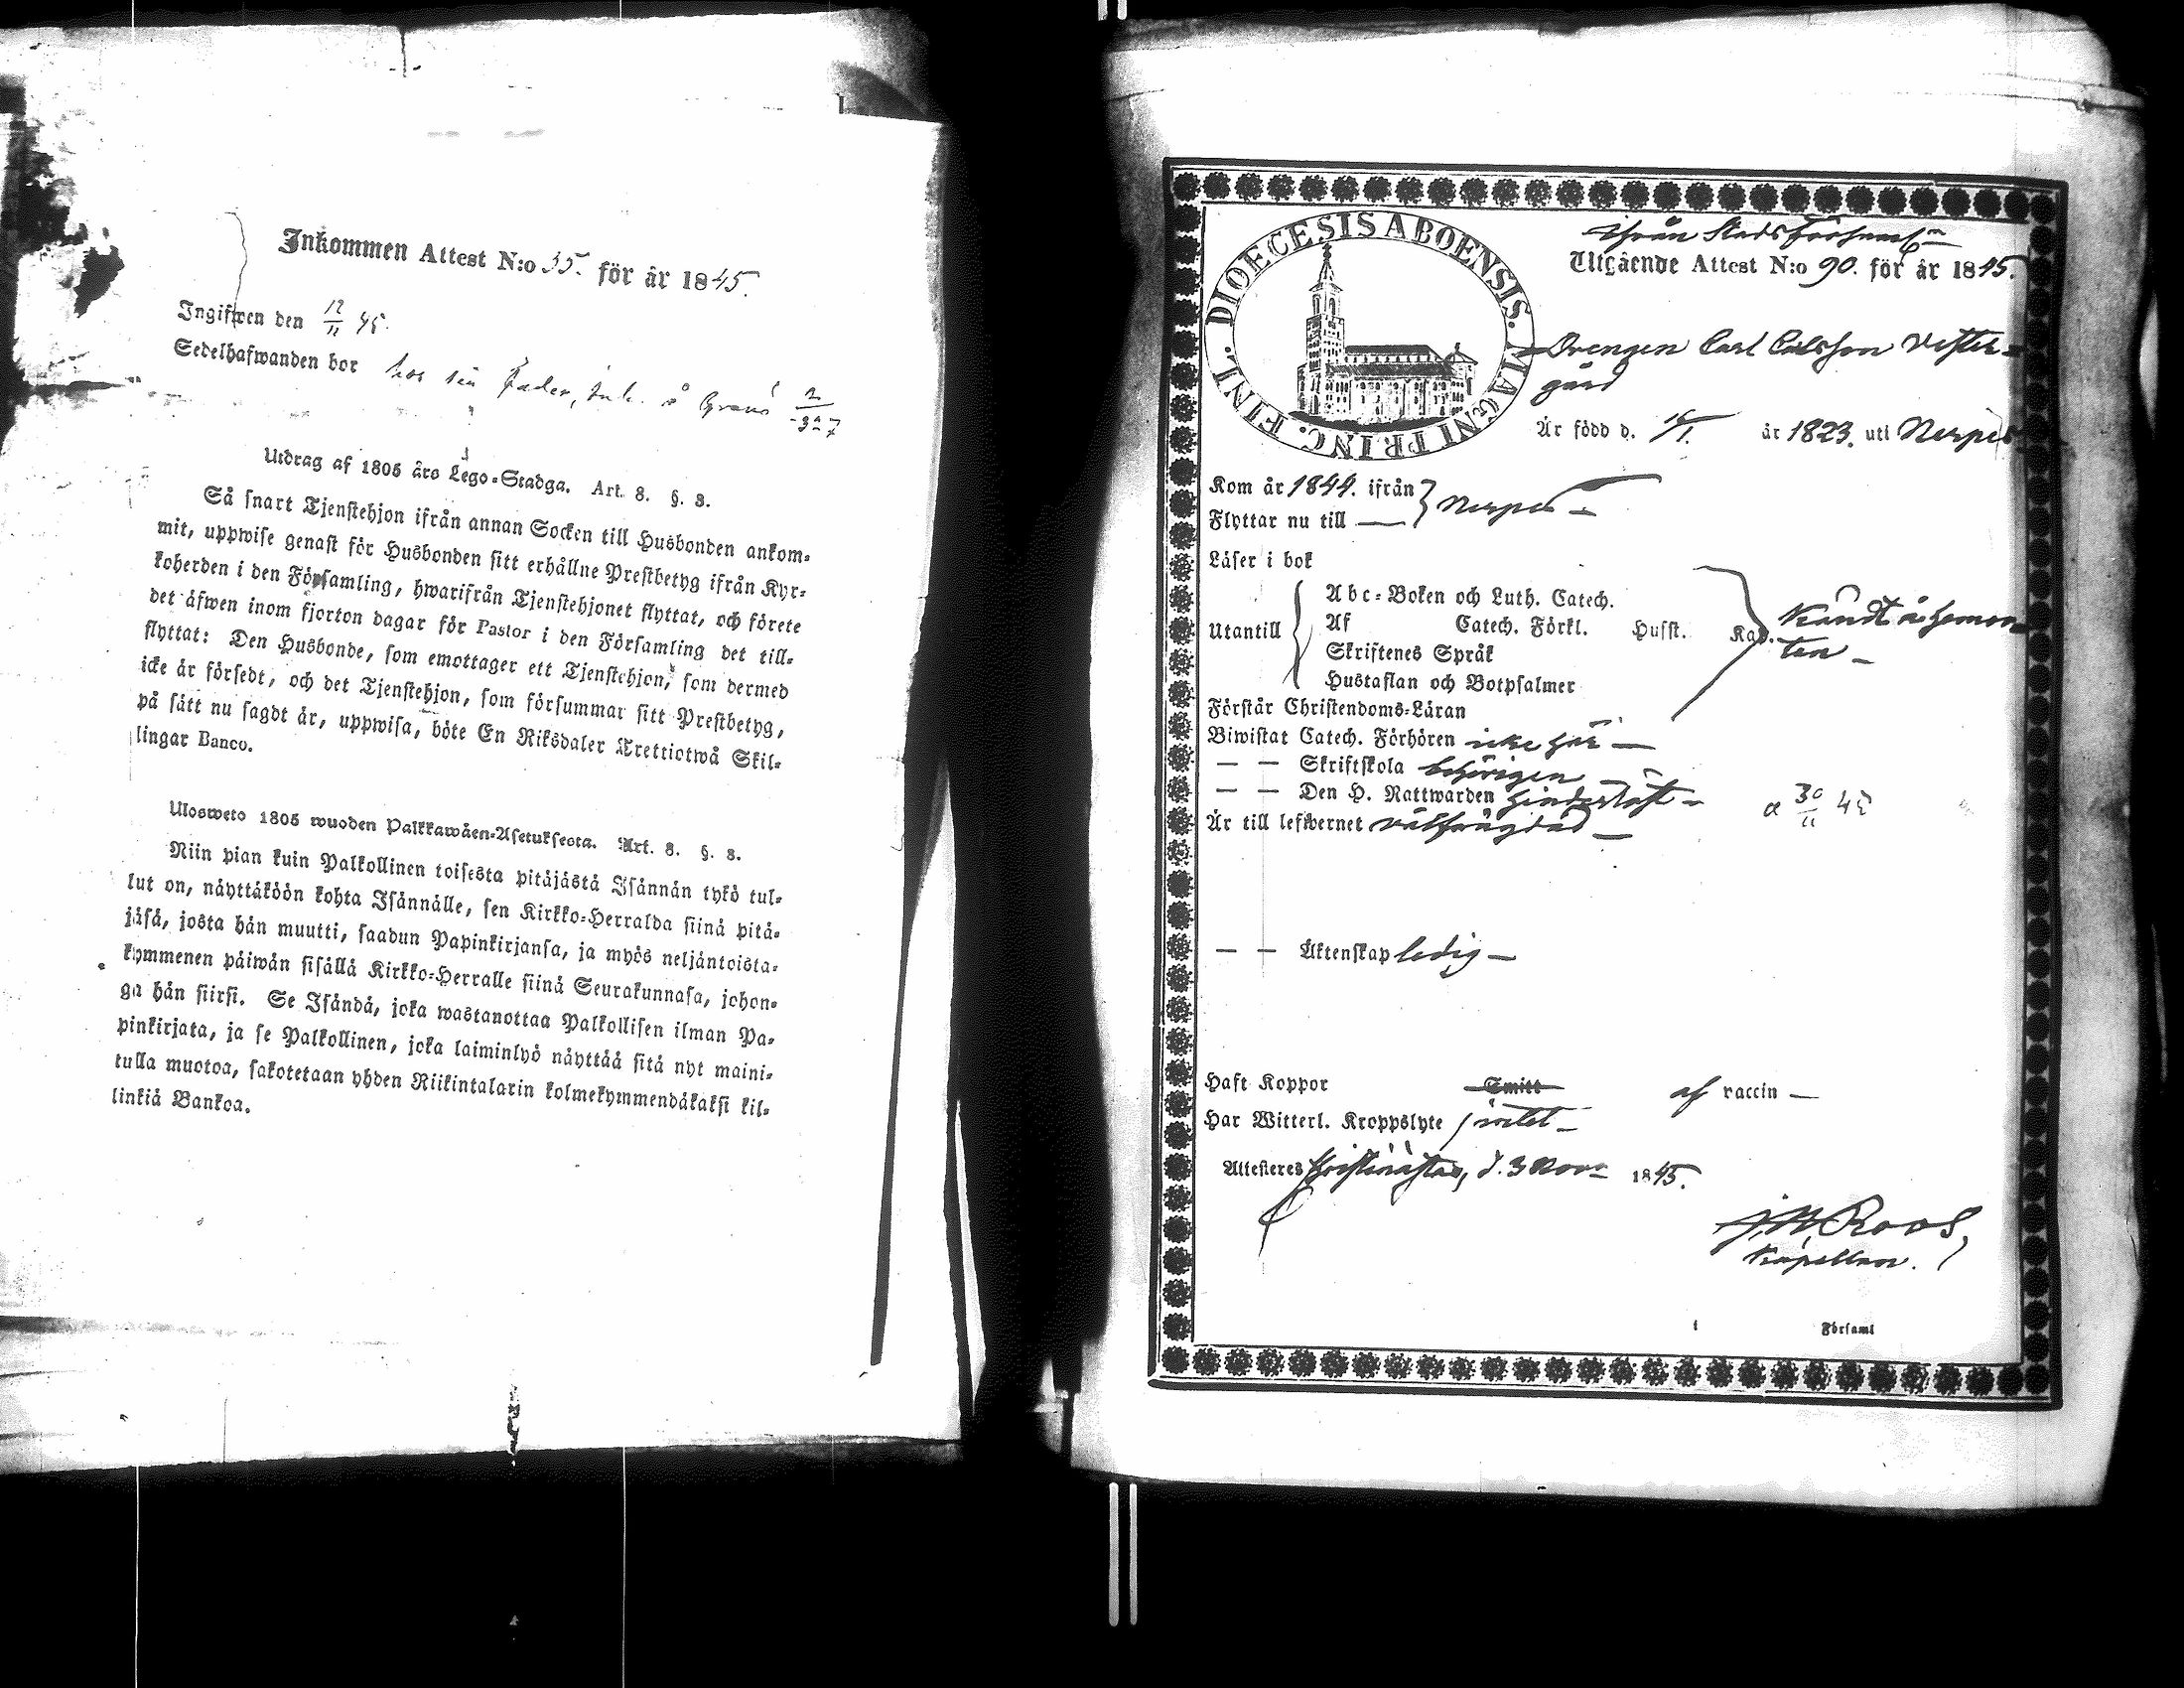 Inkommen Attest N:o 35. för år 1845.
Ingifwen den 12/11 45.
Sedelhafwanden bor hos sin Fader, å
Utdrag af 1805 års Lego-Stadga. Art. 8. §. 3.
Så snart Tjenstehjon ifrån annan Socken till Husbonden ankom-
mit, uppwise genast för Husbonden sitt erhållne Prestbetyg ifrån Kyr-
koherden i den Församling, hwarifrån Tjenstehjonet flyttat, och förete
det äfwen inom fjorton dagar för Pastor i den Församling det till-
flyttat: Den Husbonde, som emottager ett Tjenstehjon, som dermed
icke är försedt, och det Tjenstehjon, som försummar sitt Prestbetyg,
på sätt nu sagdt är, uppwisa, böte En Riksdaler Trettiotwå Skil-
lingar Banco.
Ulosweto 1805 wuoden Palkkawäen-Asetuksesta. Art. 8. §. 3.
Niin pian kuin Palkollinen toisesta pitäjästä Isännän tykö tul-
lut on, näyttäköön kohta Isännälle, sen Kirkko-Herralda siinä pitä-
jäsä, josta hän muutti, saadun Papinkirjansa, ja myös neljäntoista-
kymmenen päiwän sisällä Kirkko-Herralle siinä Seurakunnasa, johon-
ga hän siirsi. Se Isändä, joka wastanottaa Palkollisen ilman Pa-
pinkirjata, ja se Palkollinen, joka laiminlyö näyttää sitä nyt maini-
tulla muotoa, sakotetaan yhden Riikintalarin kolmekymmendäkaksi kil-
linkiä Bankoa.
DIOECESIS ABOENSIS. MAGNI PRINC. FINL.
ifrån Stads Församl:n
Utgående Attest N:o 90. för år 1845.
Drengen Carl Carlsson Vester-
gård
Är född d. år 1823. uti Nerpes
Kom år 1844. ifrån } Nerpes
Flyttar nu till
Läser i bok
Utantill
Abc-Boken och Luth. Catech.
Af Catech. Förkl. Husst. Kap.
Skriftenes Språk
Hustaflan och Botpsalmer
Förstår Christendoms-Läran
Biwistat Catech. Förhören icke här
— — Skriftskola behörigen
— — Den H. Nattwarden
a 30/11 45
Är till lefwernet välfrägdad
— — Äktenskap ledig
Haft Koppor Smitt af vaccin
Har Witterl. Kroppslyte intet
Attesteres Christinæstad, d. 3 Nov. 1845.
J. W. Roos,
Kapellan.
i Församl